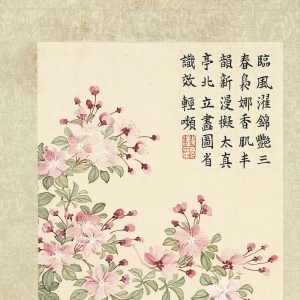 臨風濯錦艷三
春裊娜香肌丰
韻新漫擬太真
亭北立畫圖省
識效輕嚬